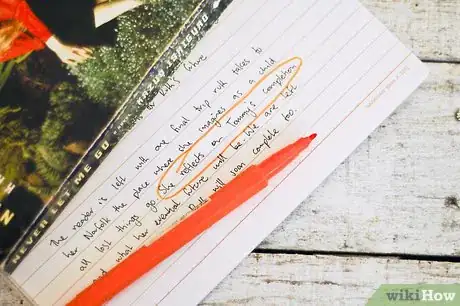 Kath's future
The reader is left with one final trip Ruth takes to
her Norfolk the place where she imagines as a child
all lost things go. She reflects on Tommy's completion
and what her eventual future will be. We are left
Ruth will soon complete too.
NEVER LET ME GO
wikiHow